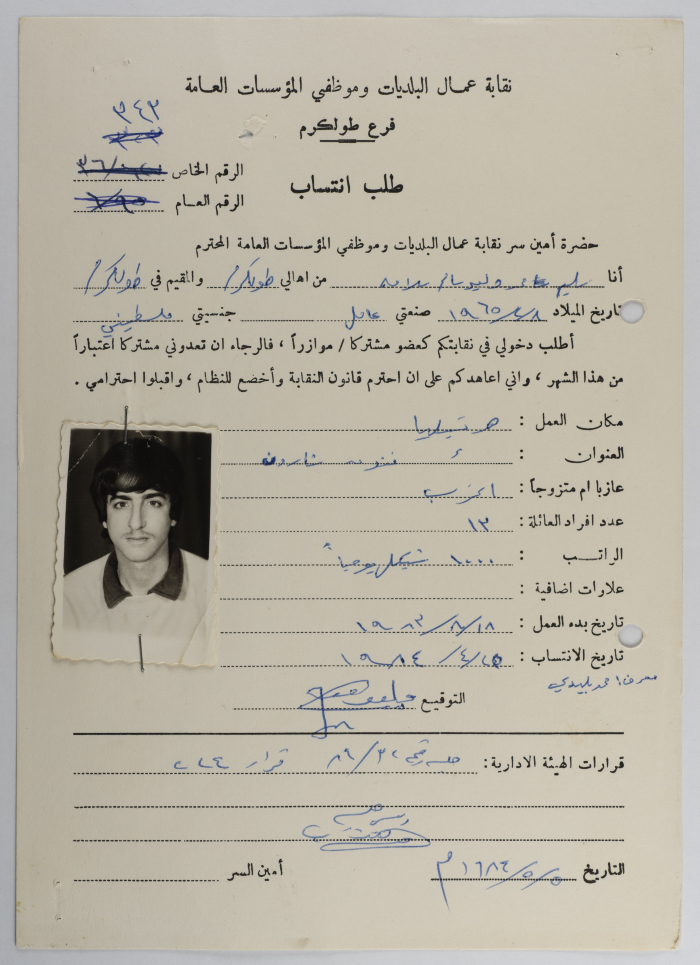 نقابة عمال البلديات وموظفي المؤسسات العامة
٣٤٣
فرع طولكرم
الرقم الخاص
طلب انتساب
الرقم العام
حضرة أمين سر نقابة عمال البلديات وموظفي المؤسسات العامة المحترم
أنا سليم من اهالي طولكرم والمقيم في طولكرم
تاريخ الميلاد ١٩٦٥/٤/٨ صنعتي عامل جنسيتي فلسطيني
أطلب دخولي في نقابتكم كعضو مشتركا / موازراً ، فالرجاء ان تعدوني مشتركا اعتباراً
من هذا الشهر ، واني اعاهدكم على ان احترم قانون النقابة وأخضع للنظام ، واقبلوا احترامي .
مكان العمل : هرتسيليا
العنوان :
عازبا ام متزوجاً : اعزب
عدد افراد العائلة : ١٣
الراتب : ١٠٠٠ شيكل يومياً
علاوات اضافية :
تاريخ بدء العمل : ١٩٨٣/٨/١٨
تاريخ الانتساب : ١٩٨٤/٤/١٥
التوقيع
قرارات الهيئة الادارية : جلسة رقم ٨٤/٣٢ قرار
التاريخ ١٩٨٤/٥/٥ م أمين السر